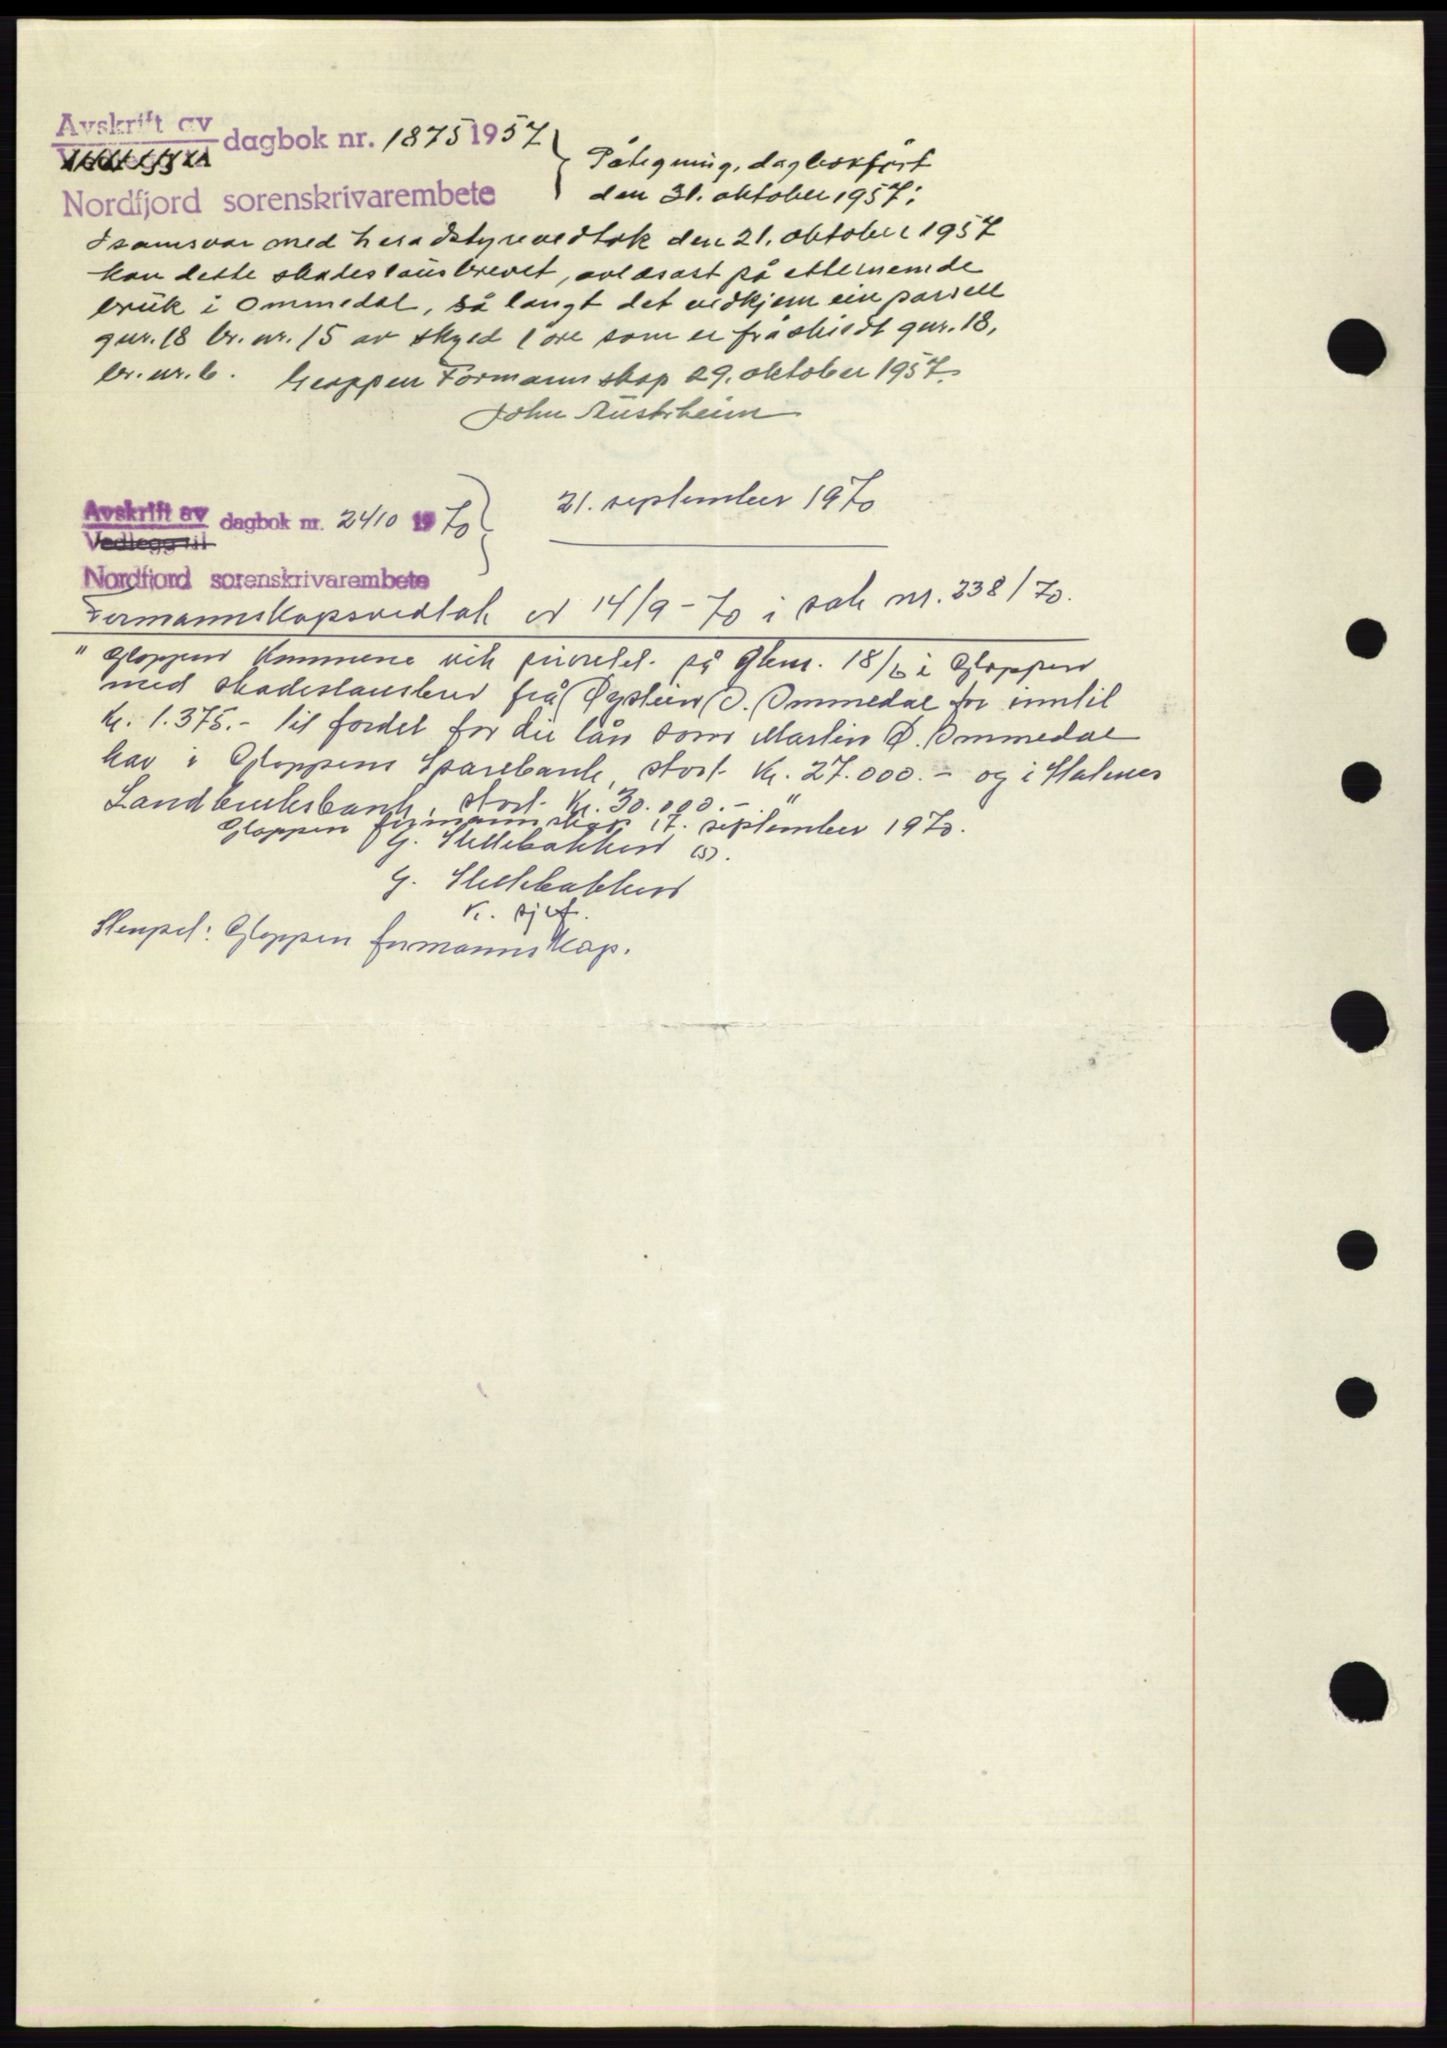 Avskrift av
Vedlegg til
dagbok nr. 1875 1957
Nordfjord sorenskrivarembete
Påtegning, dagbokført
den 31. oktober 1957:
I samsvar med heradstyrevedtak den 21. oktober 1957
kan dette skadeslausbrevet, avlesast på etternemde
bruk i Ommedal, så langt det vedkjem ein parsell
gnr. 18 br. nr. 15 av skyld 1 øre som er fråskildt gnr. 18,
br. nr. 6. Gloppen Formannskap 29. oktober 1957.
John Austrheim
Avskrift av
Vedlegg til
dagbok nr. 2410 1970
Nordfjord sorenskrivarembete
21. september 1970
Formannskapsvedtak av 14/9-70 i sak nr. 238/70.
" Gloppen kommune vik prioritet på gbnr. 18/6 i Gloppen
med skadeslausbrev frå Øystein O. Ommedal for inntil
kr. 1.375.- til fordel for dei lån som Martin Ø. Ommedal
har i Gloppen Sparebank, stort kr. 27.000.- og i Statens
Landbruksbank, stort kr. 30.000.- "
Gloppen formannskap 17. september 1970.
G. Stellebakken (s).
G. Stellebakken
k. sjef.
Stempel: Gloppen formannskap.